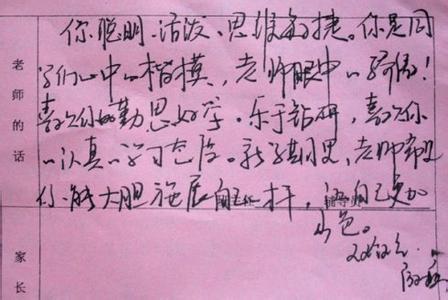 老师的话
你聪明、活泼、思维敏捷。你是同
学们心中的楷模，老师眼中的骄傲！
喜欢你的勤思好学、乐于钻研，喜欢你
的认真的学习态度。新学期里，老师希望
你能大胆施展自己的才干，让自己更加
出色。
家长